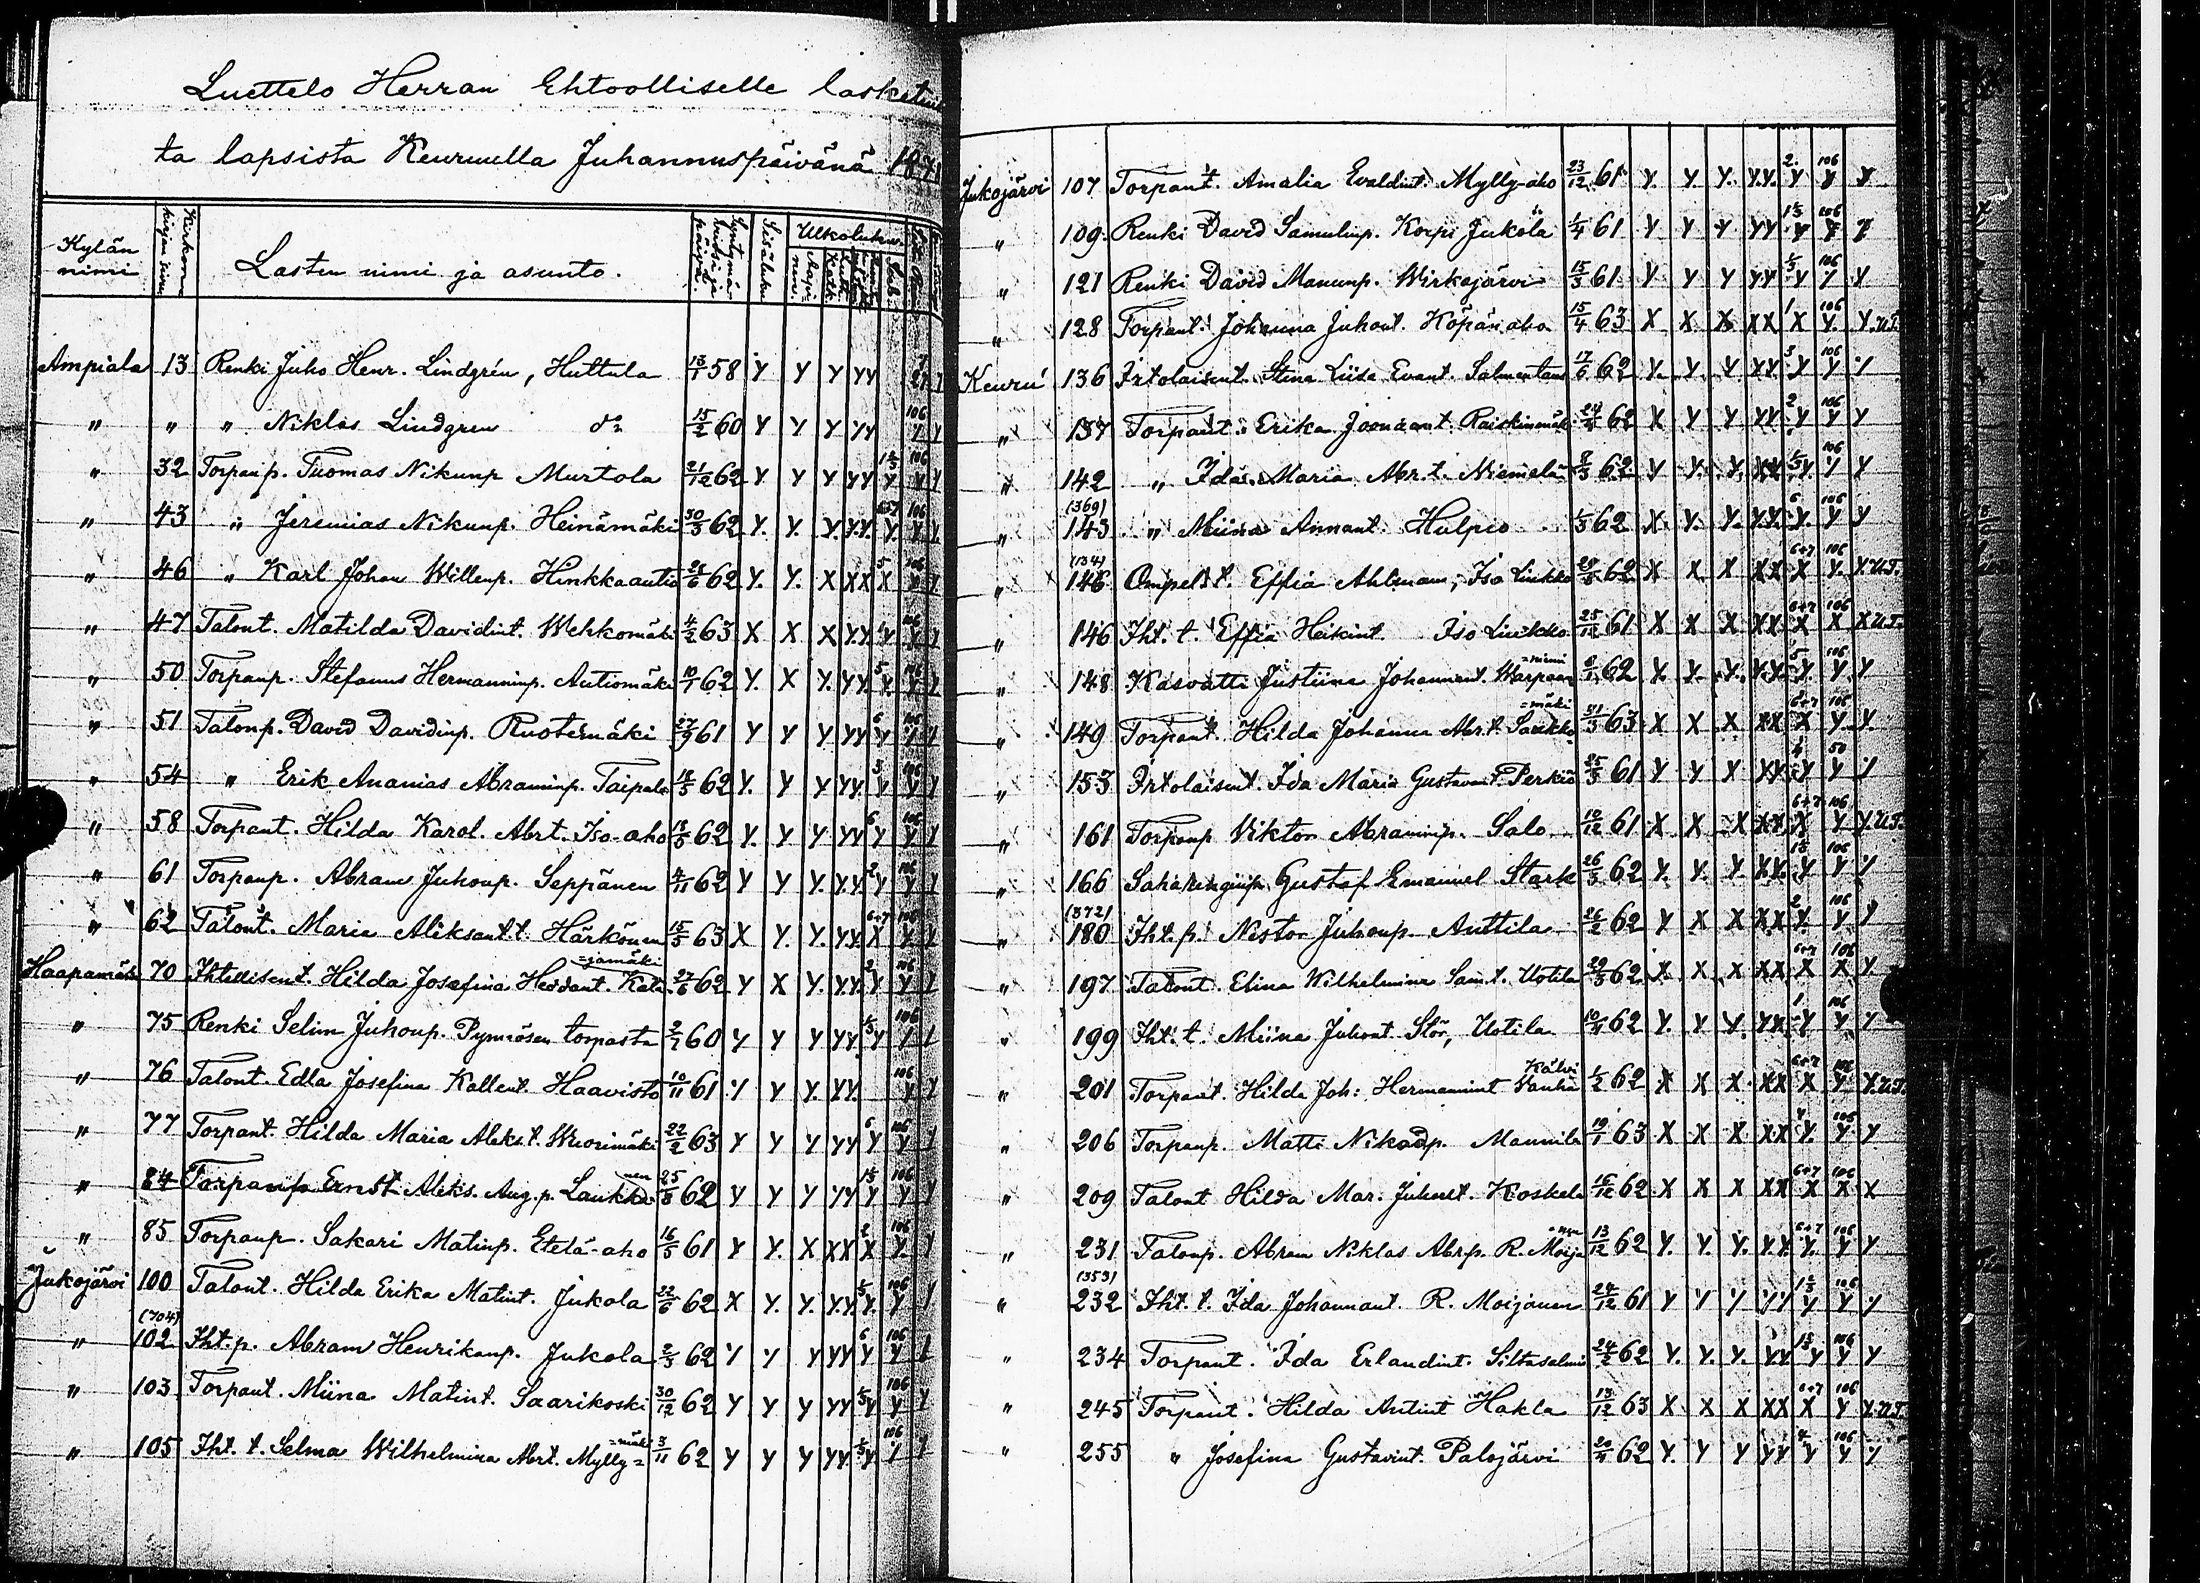 Luettelo Herran Ehtoolliselle lasketuis
ta lapsista Keuruulla Juhannuspäivänä
Kylän nimi Kirkon kirjan Lasten nimi ja asunto. Sisäluku Ulkoluku
Ampiala 13 Renki Juho Henr. Lindgrén, Huttula 13/1 58 Y Y Y YY
" " " Niklas Lindgren do 15/2 60 Y Y Y YY 106
" 32 Torpanp. Tuomas Nikunp Murtola 21/12 62 Y Y Y YY 106
" 43 " Jeremias Nikunp. Heinämäki 30/3 62 Y. Y. Y. Y.Y. 106
" 46 " Karl Johan Willenp. Hinkkaautio 62 Y. Y. X XX X
" 47 Talont. Matilda Davidint. Wehkomäki 4/2 63 X X X Y.Y.
" 50 Torpanp. Stefanus Hermanninp. Autiomäki 62 Y. X Y. YY
" 51 Talonp. David Davidinp. Ruotsinäki 27/9 61 Y Y Y YY
" 54 " Erik Ananias Abraminp. Taipale 62 Y. Y Y YY.
" 58 Torpant. Hilda Karol. Abrt. Iso-aho 62 Y. Y Y YY Y
" 61 Torpanp. Abram Juhonp. Seppänen 62 Y Y Y. Y.Y. Y
" 62 Talont. Maria Aleksant.t. Härkönen 15/3 63 X Y. Y. YY X
Haapamäki 70 Ihtellisent. Hilda Josefina Heddant. Kata =jamäki 27/6 62 Y X Y. Y.Y. Y
" 75 Renki Selim Juhonp. Pynnösen torpasta 60 Y Y Y YY. Y 106
" 76 Talont. Edla Josefina Kallent. Haavisto 10/11 61 Y Y Y. YY. 106
" 77 Torpant. Hilda Maria Alekst. Wuorimäki 22/2 63 Y Y Y YY Y 106
" 84 Torpanp Ernst Aleks. Aug.p. Laukka nen 62 Y Y Y YY Y 106
" 85 Torpanp. Sakari Matinp. Etelä-aho 16/5 61 Y Y. X XX X 106
Jukojärvi 100 Talont. Hilda Erika Matint. Jukola 22/6 62 X Y. Y. Y.Y. Y. 106
(704)
" 102 Iht.p. Abram Henrikanp. Jukola 2/3 62 Y Y Y YY Y 106
" 103 Torpant. Miina Matint. Saarikoski 30/12 62 Y Y Y YY Y 106
" 105 Iht. t. Selma Wilhelmina Abrt. Mylly= =mäki 3/11 62 Y Y Y YY Y 106
Jukojärvi 107 Torpant. Amalia Evaldint. Mylly-aho 23/12 61 Y. Y. Y. Y.Y. Y Y Y
" 109. Renki David Samulinp. Korpi Jukola 1/4 61 Y Y Y YY Y Y Y
" 121 Renki David Manunp. Wirkojärvi 15/3 61 Y Y Y YY Y Y Y
" 128 Torpant. Johanna Juhont. Höpän aho 15/4 63 X X X XX X Y. Y.U.T.
Keuruu 136 Irtolaisent. Stina Liisa Evant. 17/6 62 Y. Y. Y YY Y Y Y
" 137 Torpant. Erika Joonaant. Raiskinmäki 62 X Y Y YY Y Y Y
" 142 " Ida Maria Abr.t. Niemelä 8/3 62 Y Y. Y. Y. Y Y
(369)
" 143 " Miina Annant. Hulpio 1/3 62 X. Y. Y. Y.Y. Y. Y Y
(134)
" 146 Ompelt. Effia Ahlman, Iso Liukko 62 X X X XX X Y. Y.U.T.
" 146 Iht. t. Effia Heikint. Iso Liukko 25/12 61 X X X XX X X X U.T.
" 148 Kasvatti Justiina Johannant. Warpas =niemi 62 Y. Y. Y. Y.Y. Y. Y Y
" 149 Torpant. Hilda Johanna Abr.t. Saukko =mäki 31/3 63 X X X XX X Y. Y.
" 153 Irtolaisent. Ida Maria Gustavant. Perkiö 25/3 61 Y Y X YY Y Y Y
" 161 Torpanp Viktor Abraminp. Salo 10/12 61 X X X XX X Y Y.U.T.
" 166 Gustaf Emanuel Stark 26/3 62 Y. Y. Y. Y.Y. Y Y Y
(372)
" 180 Iht. p. Nestor Juhonp. Anttila 26/2 62 Y X X XX Y. Y. Y
" 197 Talont. Elina Wilhelmina Sam.t. Uotila 29/3 62 X X X XX X X Y.
" 199 Iht. t. Miina Juhont Stör, Uotila 62 Y. Y Y. YX Y Y. Y
" 201 Torpant. Hilda Joh: Hermannint Vanha Kälvi 1/2 62 X X X XX X Y. Y.U.T.
" 206 Torpanp. Matti Nikodp. Mannila 19/1 63 X X X XX Y. Y. Y
" 209 Talont Hilda Mar. Juhont. Koskela 16/12 62 X X X XX X X X
" 231 Talonp. Abram Niklas Abr.p. R. Moija =nen 13/12 62 Y. Y. Y. Y.Y. Y. Y Y
(353)
" 232 Iht. t. Ida Johannant. R. Moijanen 24/12 61 Y Y Y YY Y Y Y
" 234 Torpant. Ida Erlandint. Siltasalmi 24/2 62 Y. Y. Y. YY Y Y Y
" 245 Torpant. Hilda Antint Hakla 13/12 63 X X X XX X Y Y.U.T.
" 255 " Josefina Gustavint. Palojärvi 62 Y. Y Y YY Y. Y Y